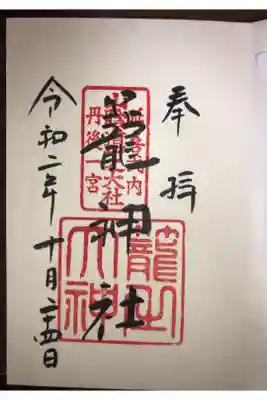 奉拝
延喜式内
大社
丹後一宮
籠神社
籠之
大神
令和二年十月二十四日